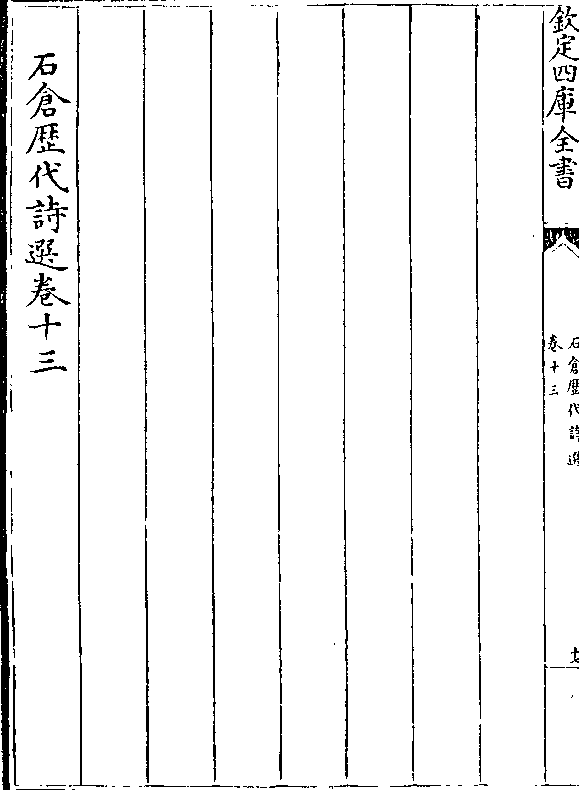 欽定四庫全書
石倉歷代詩選
卷十三
石倉歷代詩選卷十三